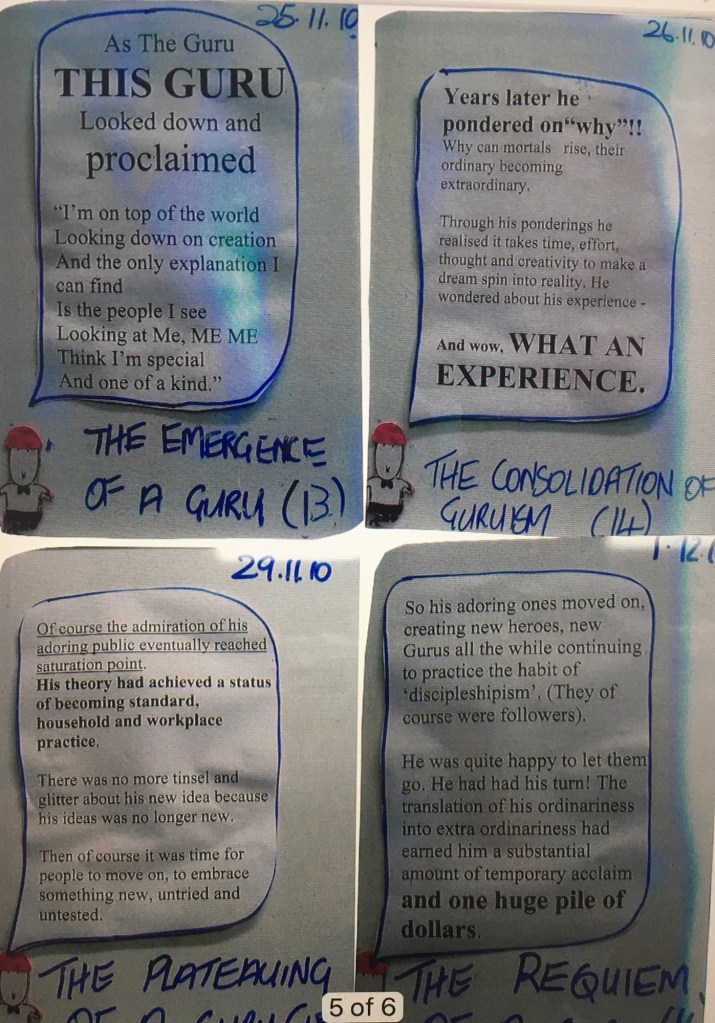 25.11.10
As The Guru
THIS GURU
Looked down and
proclaimed
“I’m on top of the world
Looking down on creation
And the only explanation I
can find
Is the people I see
Looking at Me, ME ME
Think I’m special
And one of a kind.”
THE EMERGENCE
OF A GURU (13)
26.11.10
Years later he
pondered on“why”!!
Why can mortals rise, their
ordinary becoming
extraordinary.
Through his ponderings he
realised it takes time, effort,
thought and creativity to make a
dream spin into reality. He
wondered about his experience -
And wow, WHAT AN
EXPERIENCE.
THE CONSOLIDATION OF
GURUISM (14)
29.11.10
Of course the admiration of his
adoring public eventually reached
saturation point.
His theory had achieved a status
of becoming standard,
household and workplace
practice.
There was no more tinsel and
glitter about his new idea because
his ideas was no longer new.
Then of course it was time for
people to move on, to embrace
something new, untried and
untested.
THE PLATEAUING
OF A GURU
1.12.
So his adoring ones moved on,
creating new heroes, new
Gurus all the while continuing
to practice the habit of
‘discipleshipism’. (They of
course were followers).
He was quite happy to let them
go. He had had his turn! The
translation of his ordinariness
into extra ordinariness had
earned him a substantial
amount of temporary acclaim
and one huge pile of
dollars.
THE REQUIEM
5 of 6